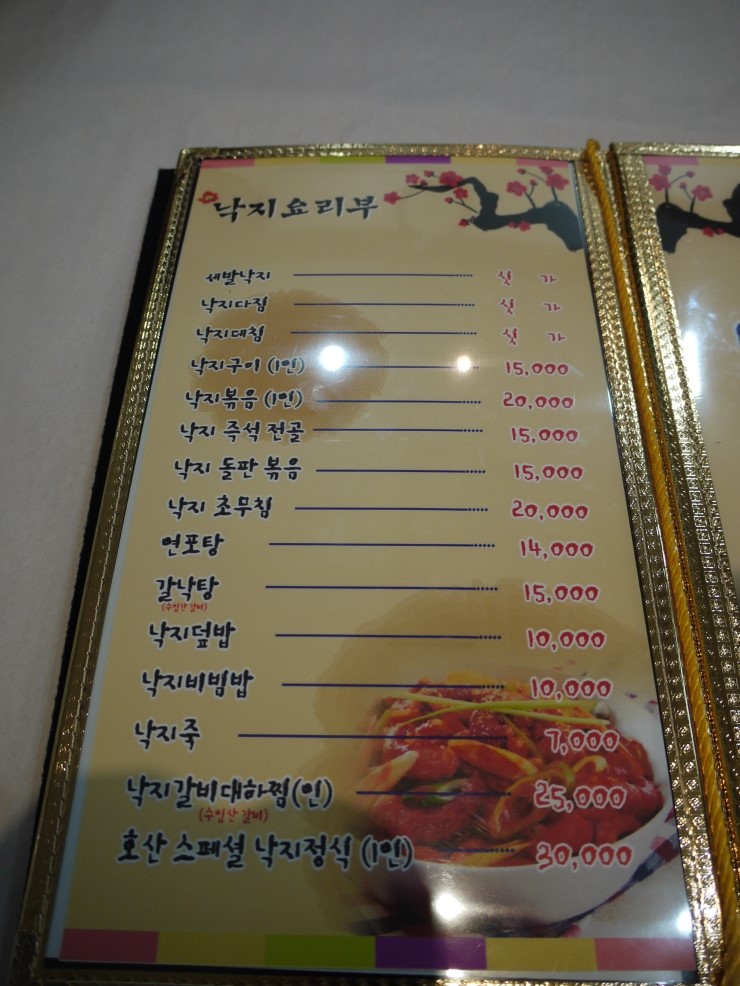 낙지요리부
세발낙지 싯 가
낙지다짐 싯 가
낙지데침 싯 가
낙지구이 (1인) 15,000
낙지볶음 (1인) 20,000
낙지 즉석 전골 15,000
낙지 돌판 볶음 15,000
낙지 초무침 20,000
연포탕 14,000
갈낙탕 15,000
(수입산 갈비)
낙지덮밥 10,000
낙지비빔밥 10,000
낙지죽 7,000
낙지갈비대하찜(인) 25,000
(수입산 갈비)
호산 스페셜 낙지정식 (1인) 30,000